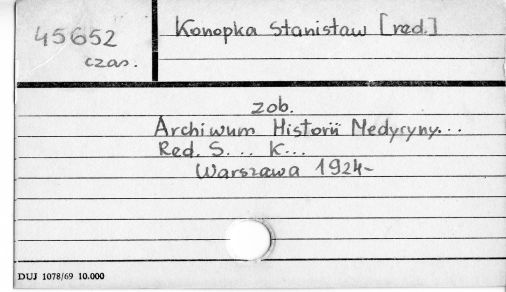 45652
czas.
Konopka Stanisław [red.]
zob.
Archiwum Historii Medycyny...
Red. S... K...
Warszawa 1924-
DUJ 1078/69 10.000